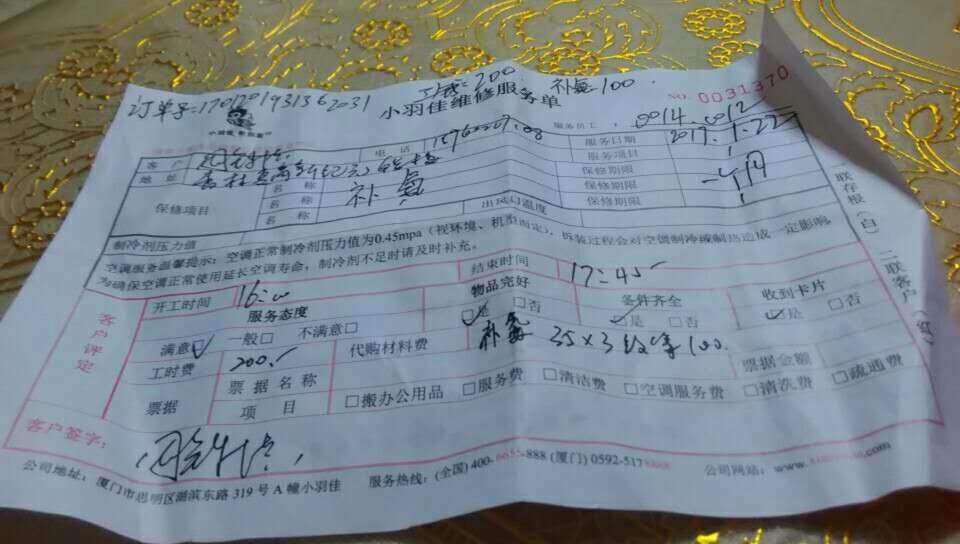 工费200 补氟100
订单号:1701201931362031
小羽佳维修服务单
NO. 0031370
小羽佳
服务员工: 0014.0012
客户 电话
服务日期 2017.1.22
地址
服务项目
保修项目 名称 补氟 保修期限
名称 保修期限
名称 保修期限
制冷剂压力值 出风口温度
空调服务温馨提示: 空调正常制冷剂压力值为0.45mpa(视环境、机型而定), 拆装过程会对空调制冷或制热造成一定影响,
为确保空调正常使用延长空调寿命, 制冷剂不足时请及时补充。
联存根(白) 二联客户(红)
客户评定
开工时间 16:00 结束时间 17:45
服务态度 物品完好 条件齐全 收到卡片
满意☑ 一般□ 不满意□ ☑是 □否 ☑是 □否 ☑是 □否
工时费 200. 代购材料费 补氟 35×3 100. 票据金额
票据 票据名称
项目 □搬办公用品 □服务费 □清洁费 □空调服务费 □清洗费 □疏通费
客户签字:
公司地址: 厦门市思明区湖滨东路319号A幢小羽佳 服务热线: (全国) 400-0655-888 (厦门) 0592-5178888 公司网站: www.